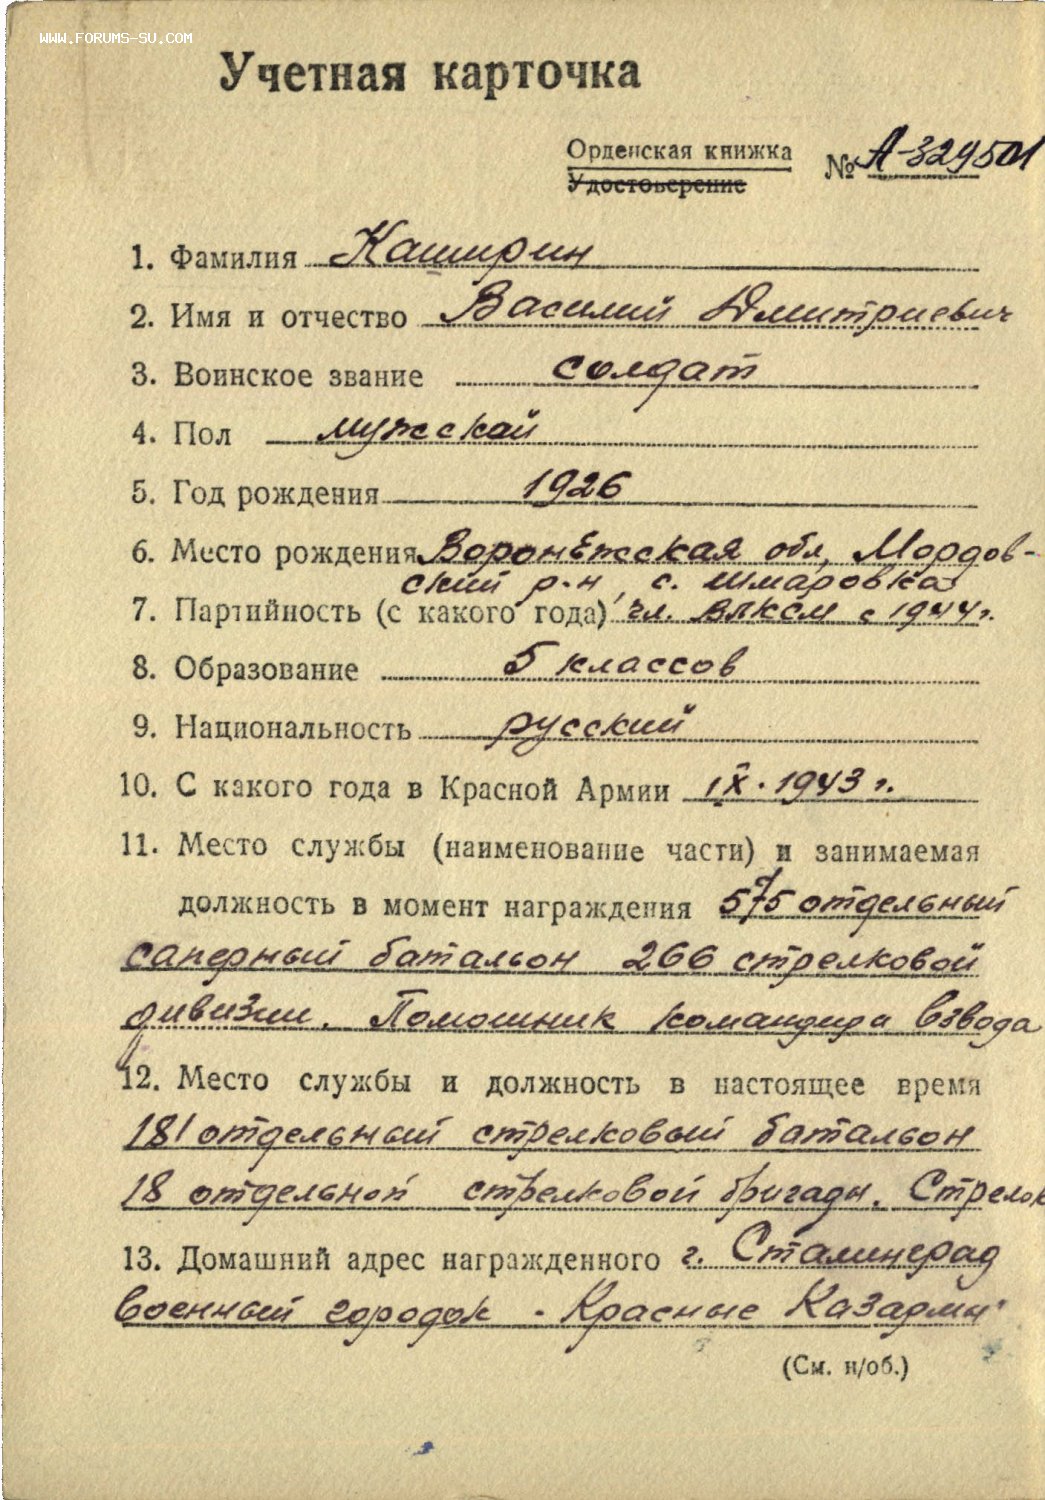 WWW.FORUMS-SU.COM
Учетная карточка
Орденская книжка
Удостоверение
№ А-329501
1. Фамилия Каширин
2. Имя и отчество Василий Дмитриевич
3. Воинское звание солдат
4. Пол мужской
5. Год рождения 1926
6. Место рождения Воронежская обл, Мордов-
ский р-н, с. Шмаровка
7. Партийность (с какого года) чл. ВЛКСМ с 1944 г.
8. Образование 5 классов
9. Национальность русский
10. С какого года в Красной Армии IX. 1943 г.
11. Место службы (наименование части) и занимаемая
должность в момент награждения 575 отдельный
саперный батальон 266 стрелковой
дивизии. Помошник командира взвода
12. Место службы и должность в настоящее время
181 отдельный стрелковый батальон
18 отдельной стрелковой бригады. Стрелок
13. Домашний адрес награжденного г. Сталинград
военный городок - Красные Казармы
(См. н/об.)